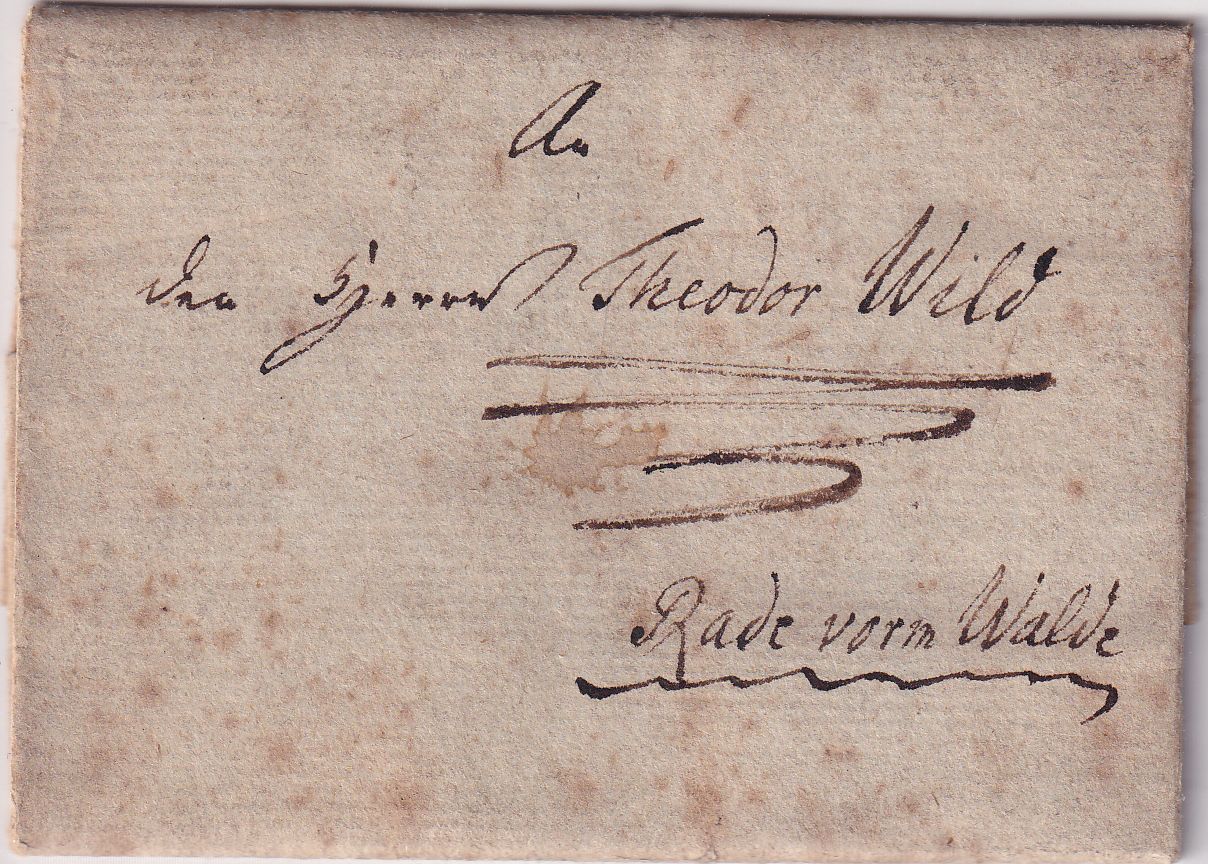 An
den Herrn Theodor Wild
Rade vorm Walde